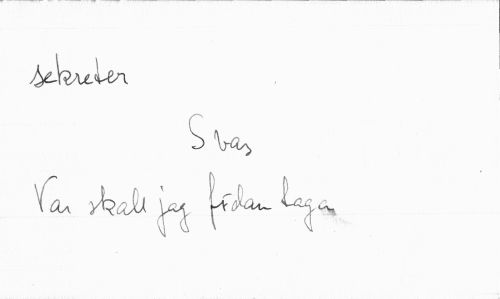 sekreter
Svar
Var skall jag fidan taga